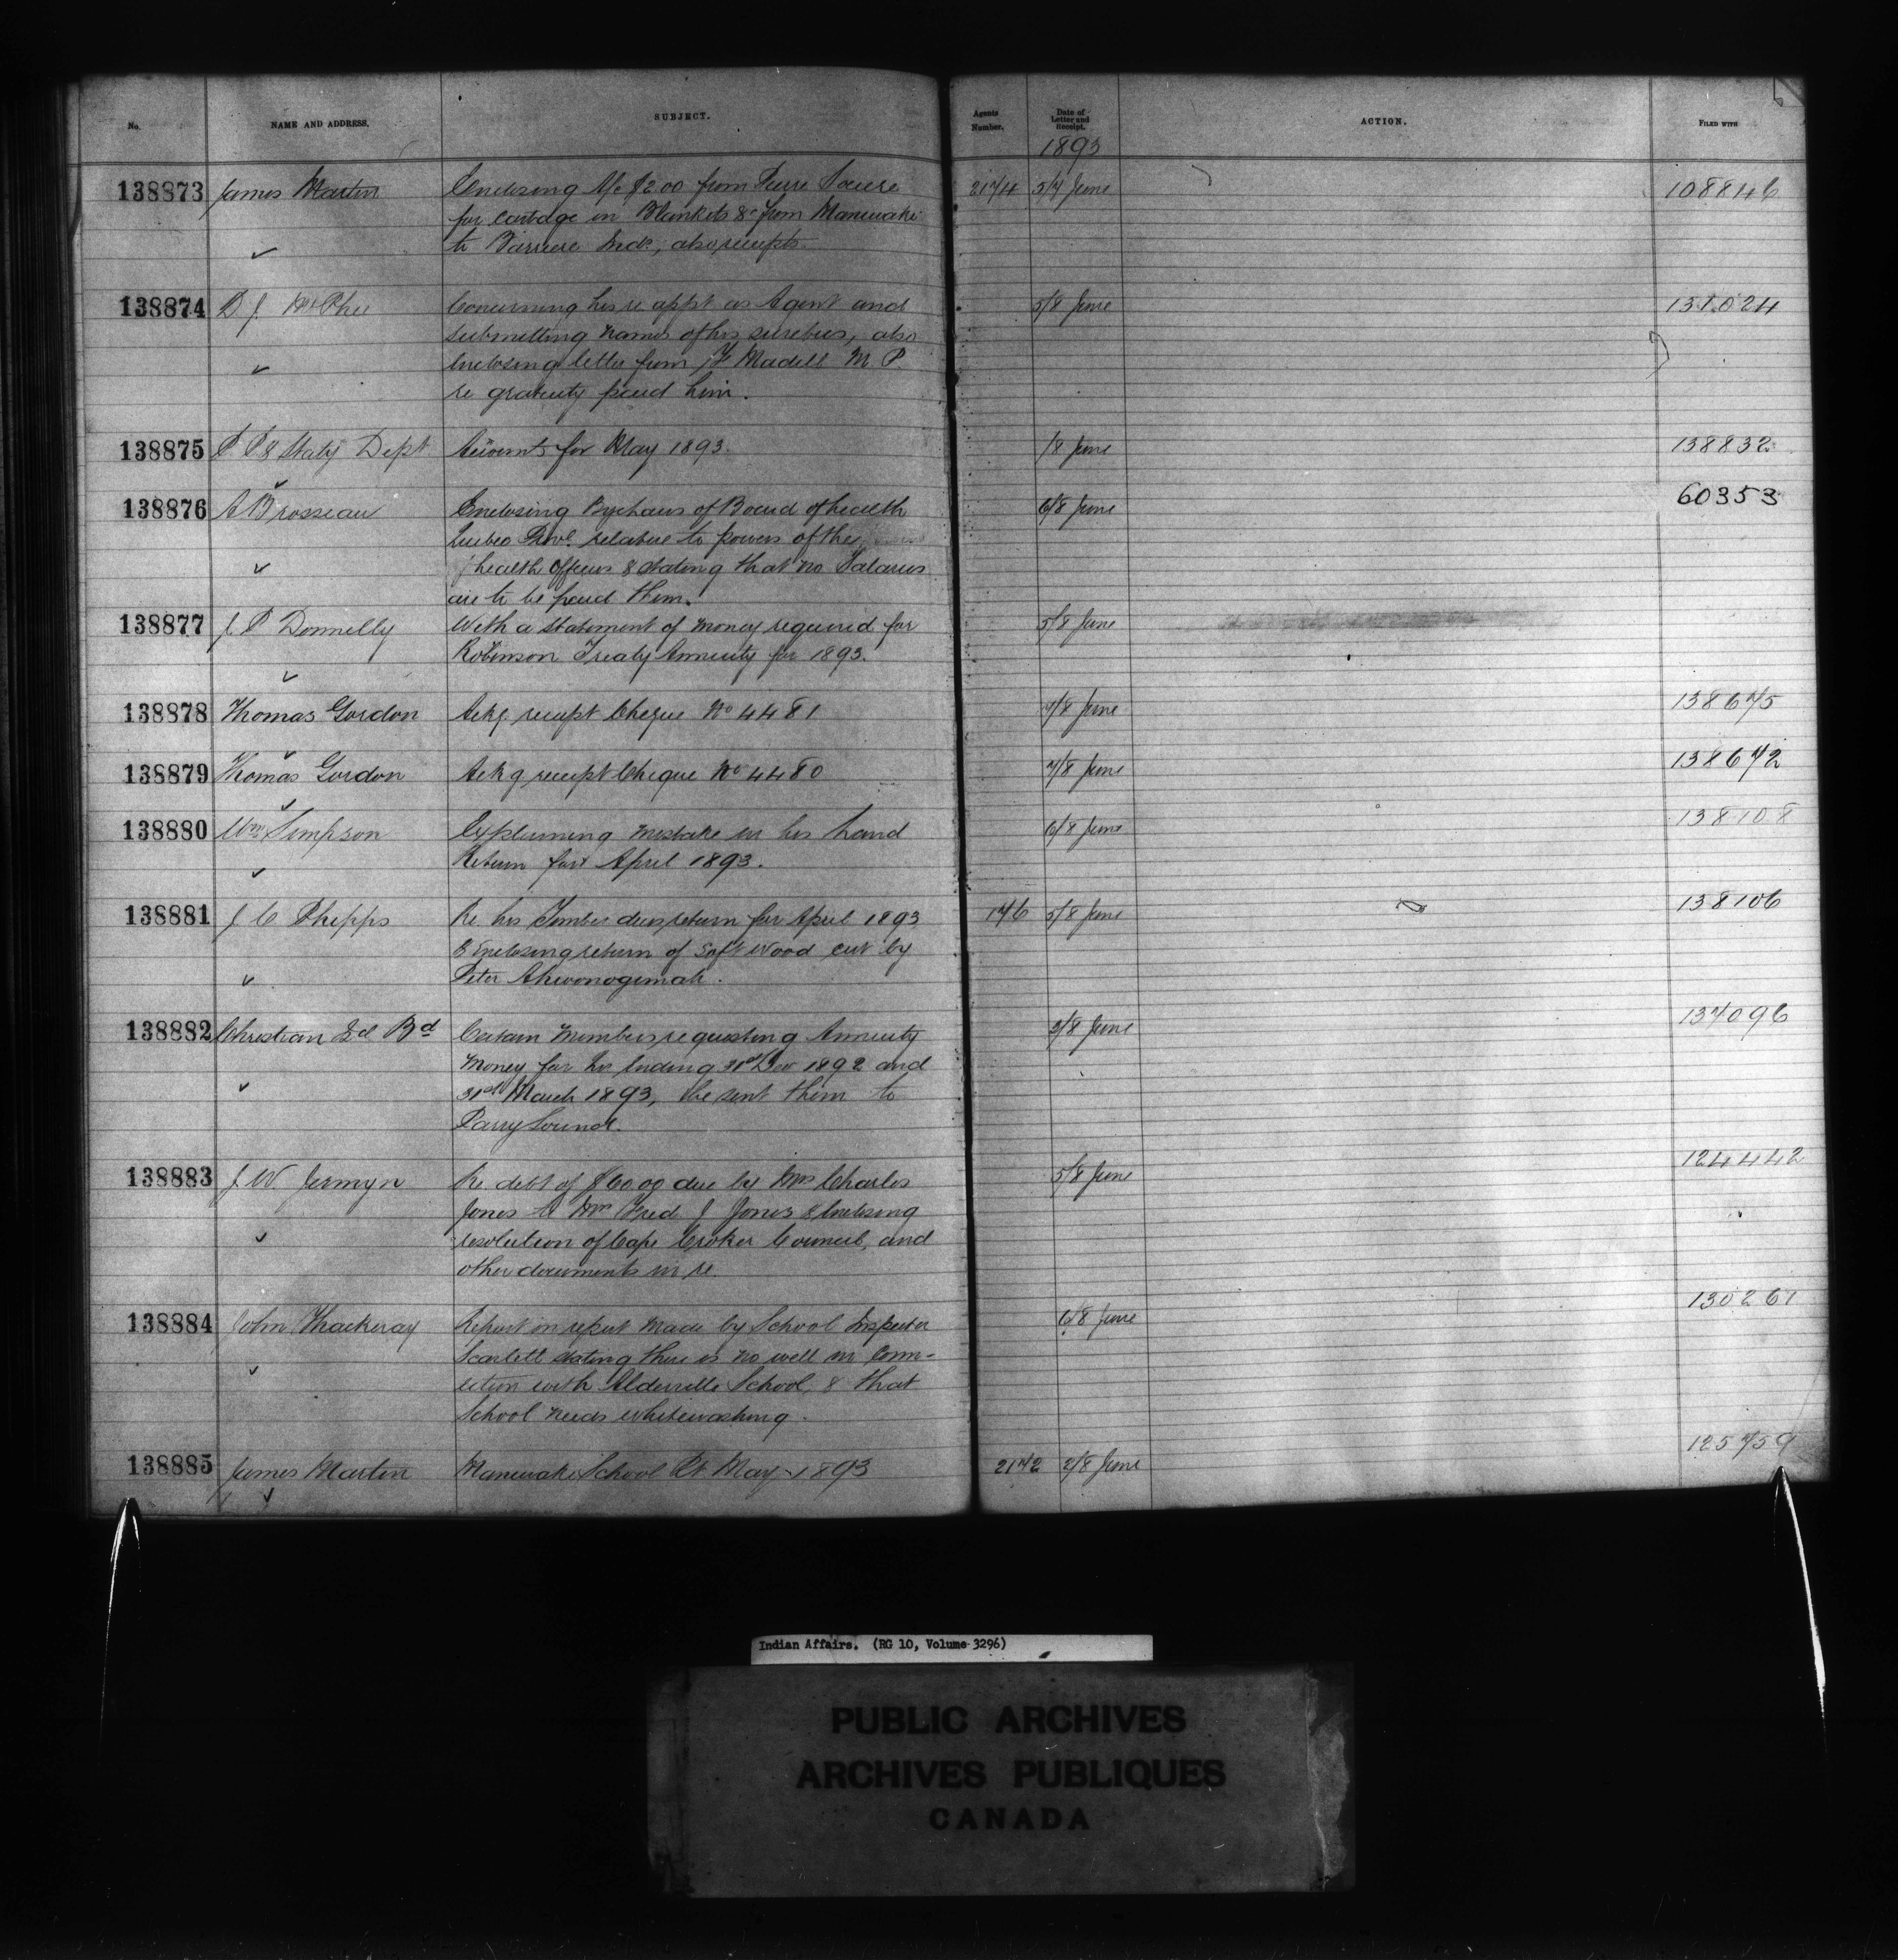 No. NAME AND ADDRESS. SUBJECT. Agents Number. Date of Letter and Receipt. ACTION. FILED WITH
1893
138873 James Martin Enclosing a/c $2.00 from 2174 5/7 June 108846
for cartage on Blankets &c from Maniwaki
to Barriere Inds, also receipts.
138874 D J McPhee Concerning his re appt as Agent and 5/8 June 131024
submitting names of his sureties, also
enclosing letter from Madill M.P.
re gratuity paid him.
138875 P P & Staty Dept Accounts for May 1893. /8 June 138832
138876 A Brosseau Enclosing of Board of health 6/8 June 60353
Quebec Prov. relative to powers of the
health officers & stating that no Salaries
are to be paid them.
138877 J. P Donnelly With a statement of money required for 5/8 June
Robinson Treaty Annuity for 1893.
138878 Thomas Gordon Ackg receipt Cheque No 4481 7/8 June 138675
138879 Thomas Gordon Ackg receipt Cheque No 4480 7/8 June 138672
138880 Wm Simpson Explaining mistake in his Land 6/8 June 138108
Return for April 1893.
138881 J C Phipps Re his Timber dues return for April 1893 146 5/8 June 138106
& Enclosing return of Soft Wood cut by
Peter
138882 Christian Id Bd Certain Members requesting Annuity 3/8 June 137096
Money for hrs ending 31st Dec 1892 and
31st March 1893, be sent them to
Parry Sound.
138883 J. W. Jermyn Re debt of $60.00 due by Mrs Charles 5/8 June 124442
Jones to Fred J Jones & Enclosing
resolution of Cape Croker Council, and
other documents in re
138884 John Thackeray Report on report made by School Inspector 6/8 June 130261
Scarlett stating there is no well in Conn-
ection with Alderville School, & that
School needs whitewashing.
138885 James Martin Maniwaki School Rt May 1893 2172 2/8 June 125759
Indian Affairs. (RG 10, Volume 3296)
PUBLIC ARCHIVES
ARCHIVES PUBLIQUES
CANADA